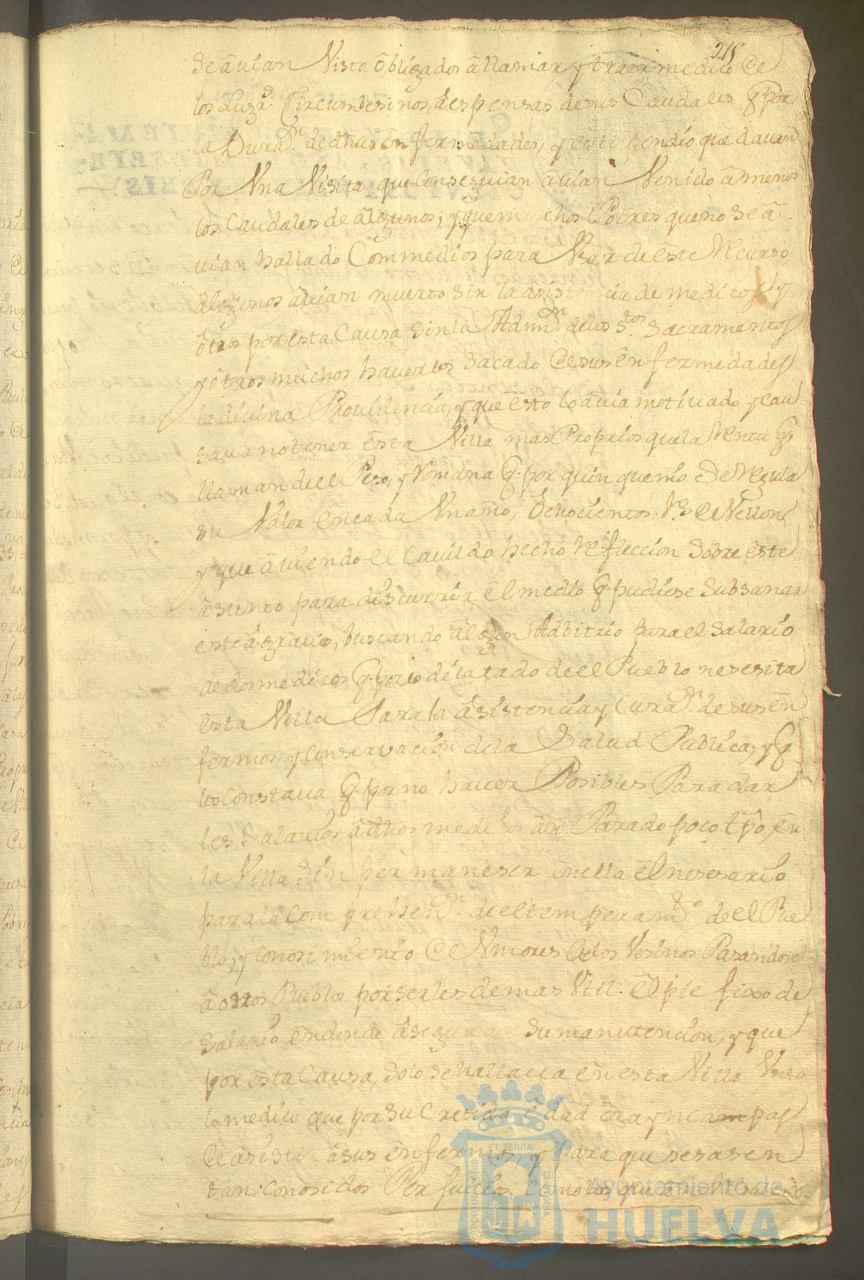 218
se avian visto obligados a llamar y traer medico de
los Lugs. Circumvesinos, a espensas de sus Caudales q. por
la Duran. de dhas enfermedades, y estipendio que davan
Por Una Visita que Conseguian avian Venido a menos
los Caudales de algunos; y que muchos Pobres que no se a
vian hallado Con medios para Usar de este Recurso
algunos avian muerto sin la asistencia de medico, y
otros por esta Causa sin la Admn. de los Stos. Sacramentos
y otros muchos haverlos sacado de sus enfermedades
la divina Providencia, y que esto lo avia motivado y cau
sava no tener esta Villa mas Proprios que la Renta q.
llaman de el Peso, y Romana q. por quinquenio se Regula
su Valor en cada Un año, Rs. de Vellon
y que aviendo el Cavildo hecho refleccion sobre este
asunto para discurrir el medio q. pudiese subsanar
este agravio, buscando algun Adbitrio para el salario
de dos medicos q. por lo dilatado de el Pueblo nesesita
esta Villa Para la asistencia y Curan. de sus en
fermos, y conservacion de la Salud Publica, y q.
les Constava q. por no haver Posibles Para dar
les salarios a dhos medicos an Parado poco tpo. en
la Villa sin permaneser en ella el nesesario
para la Comprehen. de el temperamto. de el Pue
blo, y conosimiento de Umores de los Vesinos Pasandose
a otros Pueblos por serles de mas Util. el Pie fixo de
salario en donde aseguran su manutencion, y que
por esta Causa, solo se hallava en esta Villa Un so
lo medico que por su Cresida edad era yncampas
de asistir a sus enfermos, y para que sesasen
tan conosidos Perjuicios, como los que
Ayuntamiento de
HUELVA